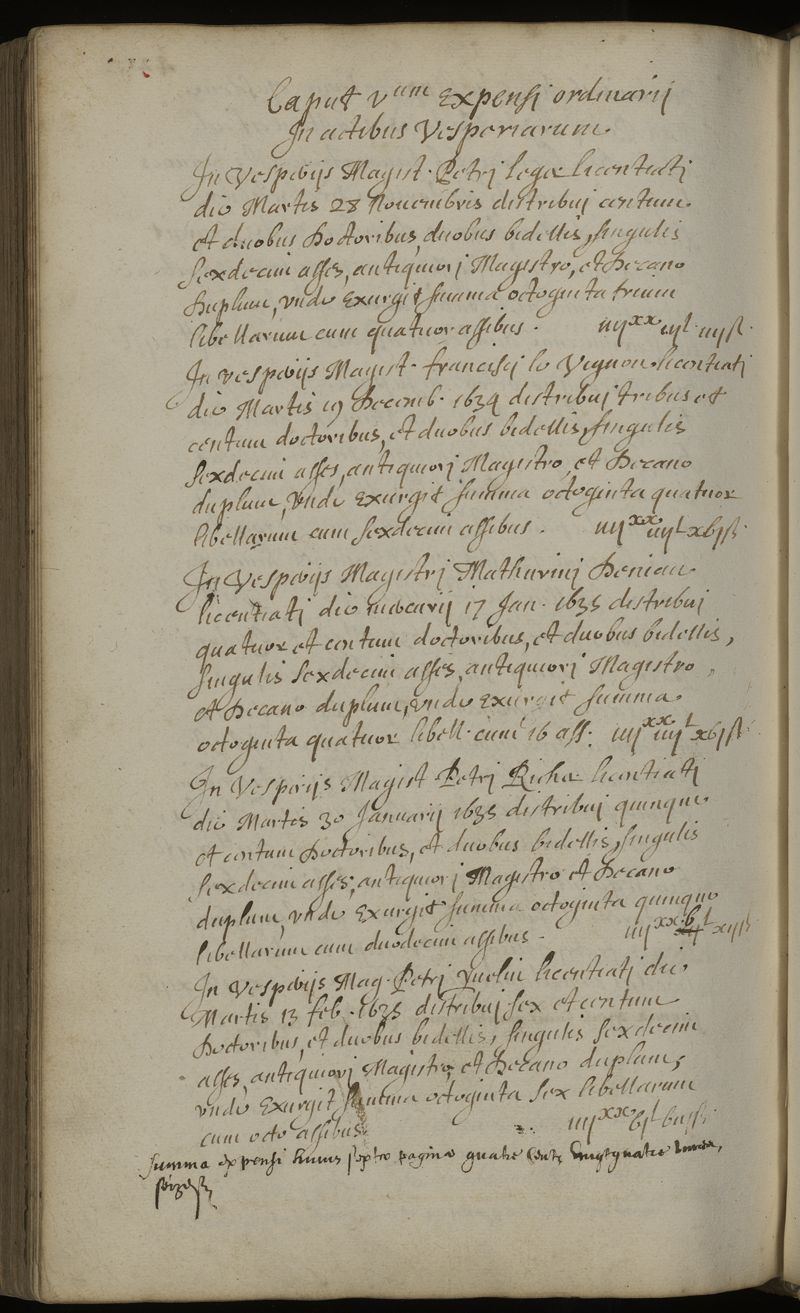 Caput Vum Expensi ordinarij
In actibus Vesperiarum.
In Vesperijs Magist. Petri Legier licentiati
die Martis 28 Novembris distribui centum
et duobus Doctoribus, duobus bidellis, singulis
sexdecim asses, antiquiori Magistro, et Decano
Duplum, unde Exurgit summa octoginta trium
libellarum cum quatuor assibus. iiijxx iijl iiijß.
In vesperijs Magist. francisci le Vignon licentiati
die Martis 19 Decemb. 1634 distribui tribus et
centum doctoribus, et duobus bidellis, singulis
sexdecim asses, antiquiori Magistro, et Decano
duplum, Unde Exurgit summa octoginta quatuor
libellarum cum sexdecim assibus. iiijxx iiijl xvjß.
In Vesperijs Magistri Mathurini Deniau
licentiati die mercurij 17 Jan. 1635 distribui
quatuor et centum doctoribus, et duobus bidellis,
singulis sexdecim asses, antiquiori Magistro,
et Decano duplum, unde exurgit summa
octoginta quatuor libell. cum 16 ass. iiijxx iiijl xvjß.
In Vesperijs Magist Petri Richer licentiati
die Martis 30 Januarij 1635 distribui quinque
et centum Doctoribus, et duobus bidellis, singulis
sexdecim asses, antiquiori Magistro et Decano
duplum, unde Exurgit summa octoginta quinque
libellarum cum duodecim assibus. iiijxx vl xijß
In Vesperijs Mag. Petri Yvelin licentiati die
Martis 13 feb. 1635 distribui sex et centum
Doctoribus, et duobus bidellis, singulis sexdecim
asses, antiquiori Magistro, et Decano duplum,
unde Exurgit summa octoginta sex libellarum
cum octo assibus. iiijxx vjl viijß.
Summa expensi huius septae paginae quatre cents vingt quatre livres,
seize ß